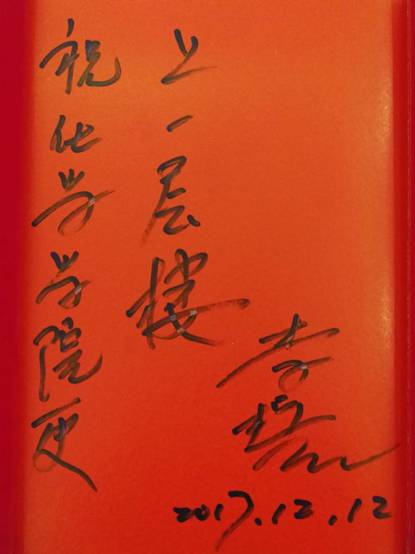 祝化学学院更
上一层楼
李
2017.12.12